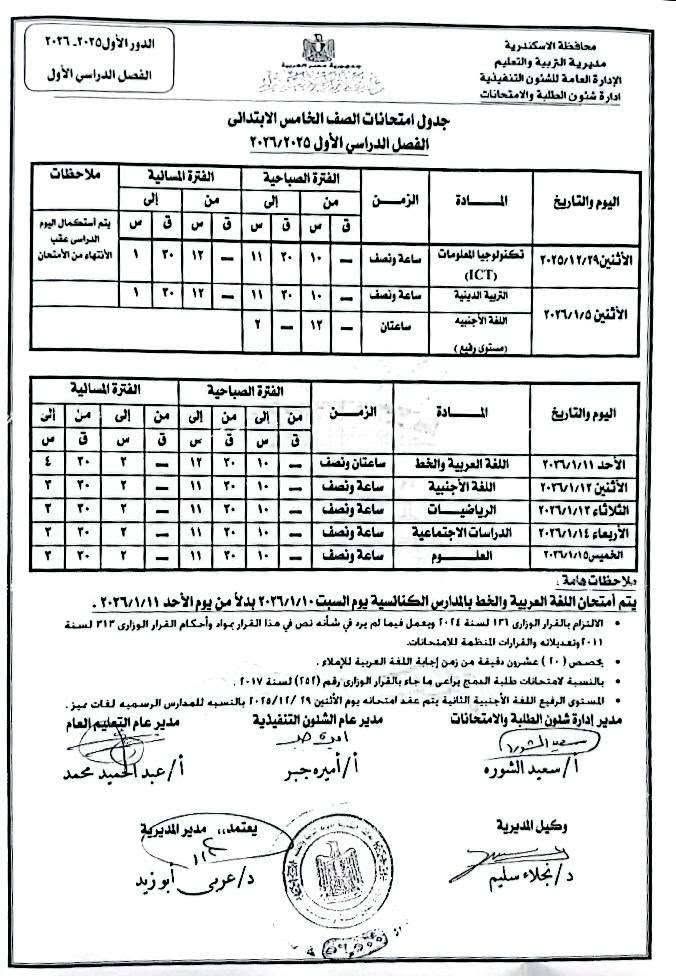 الدور الأول ٢٠٢٥ـ ٢٠٢٦
الفصل الدراسي الأول
محافظة الاسكندرية
مديرية التربية والتعليم
الإدارة العامة للشئون التنفيذية
ادارة شئون الطلبة والامتحانات
جدول امتحانات الصف الخامس الابتدائى
الفصل الدراسي الأول ٢٠٢٦/٢٠٢٥
اليوم والتاريخ المـــادة الزمـن الفترة الصباحية الفترة المسائية ملاحظات
من إلى من إلى
ق س ق س ق س ق س
الأثنين ٢٠٢٥/١٢/٢٩ تكنولوجيا المعلومات (ICT) ساعة ونصف — ١٠ ٣٠ ١١ — ١٢ ٣٠ ١ يتم أستكمال اليوم الدراسى عقب الأنتهاء من الأمتحان
الأثنين ٢٠٢٦/١/٥ التربية الدينية ساعة ونصف — ١٠ ٣٠ ١١ — ١٢ ٣٠ ١
اللغة الأجنبيه (مستوى رفيع) ساعتان — ١٢ — ٢
اليوم والتاريخ المـــادة الزمـن الفترة الصباحية الفترة المسائية
من إلى من إلى
ق س ق س ق س ق س
الأحد ٢٠٢٦/١/١١ اللغة العربية والخط ساعتان ونصف — ١٠ ٣٠ ١٢ — ٢ ٣٠ ٤
الأثنين ٢٠٢٦/١/١٢ اللغة الأجنبية ساعة ونصف — ١٠ ٣٠ ١١ — ٢ ٣٠ ٣
الثلاثاء ٢٠٢٦/١/١٣ الرياضيـــات ساعة ونصف — ١٠ ٣٠ ١١ — ٢ ٣٠ ٣
الأربعاء ٢٠٢٦/١/١٤ الدراسات الاجتماعية ساعة ونصف — ١٠ ٣٠ ١١ — ٢ ٣٠ ٣
الخميس ٢٠٢٦/١/١٥ العلـــوم ساعة ونصف — ١٠ ٣٠ ١١ — ٢ ٣٠ ٣
ملاحظات هامة :
يتم أمتحان اللغة العربية والخط بالمدارس الكنائسية يوم السبت ٢٠٢٦/١/١٠ بدلاً من يوم الأحد ٢٠٢٦/١/١١ .
• الالتزام بالقرار الوزارى ١٣٦ لسنة ٢٠٢٤ ويعمل فيما لم يرد في شأنه نص في هذا القرار بمواد وأحكام القرار الوزارى ٣١٣ لسنة
٢٠١١ وتعديلاته والقرارات المنظمة للامتحانات.
• يخصص (٢٠) عشرون دقيقة من زمن إجابة اللغة العربية للإملاء .
• بالنسبة لامتحانات طلبة الدمج يراعى ما جاء بالقرار الوزارى رقم (٢٥٢) لسنة ٢٠١٧ .
• المستوى الرفيع اللغة الأجنبية الثانية يتم عقد امتحانه يوم الأثنين ٢٩ /٢٠٢٥/١٢ بالنسبه للمدارس الرسميه لغات مميز .
مدير إدارة شئون الطلبة والامتحانات
أ/ سعيد الشوره
مدير عام الشئون التنفيذية
أ/ أميره جبر
مدير عام التعليم العام
أ/ عبد الحميد محمد
وكيل المديرية
د/ نجلاء سليم
يعتمد،، مدير المديرية
د/ عربى أبو زيد